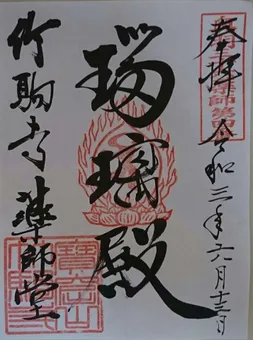 奉拝
令和三年六月十三日
瑠璃殿
竹駒寺 薬師堂